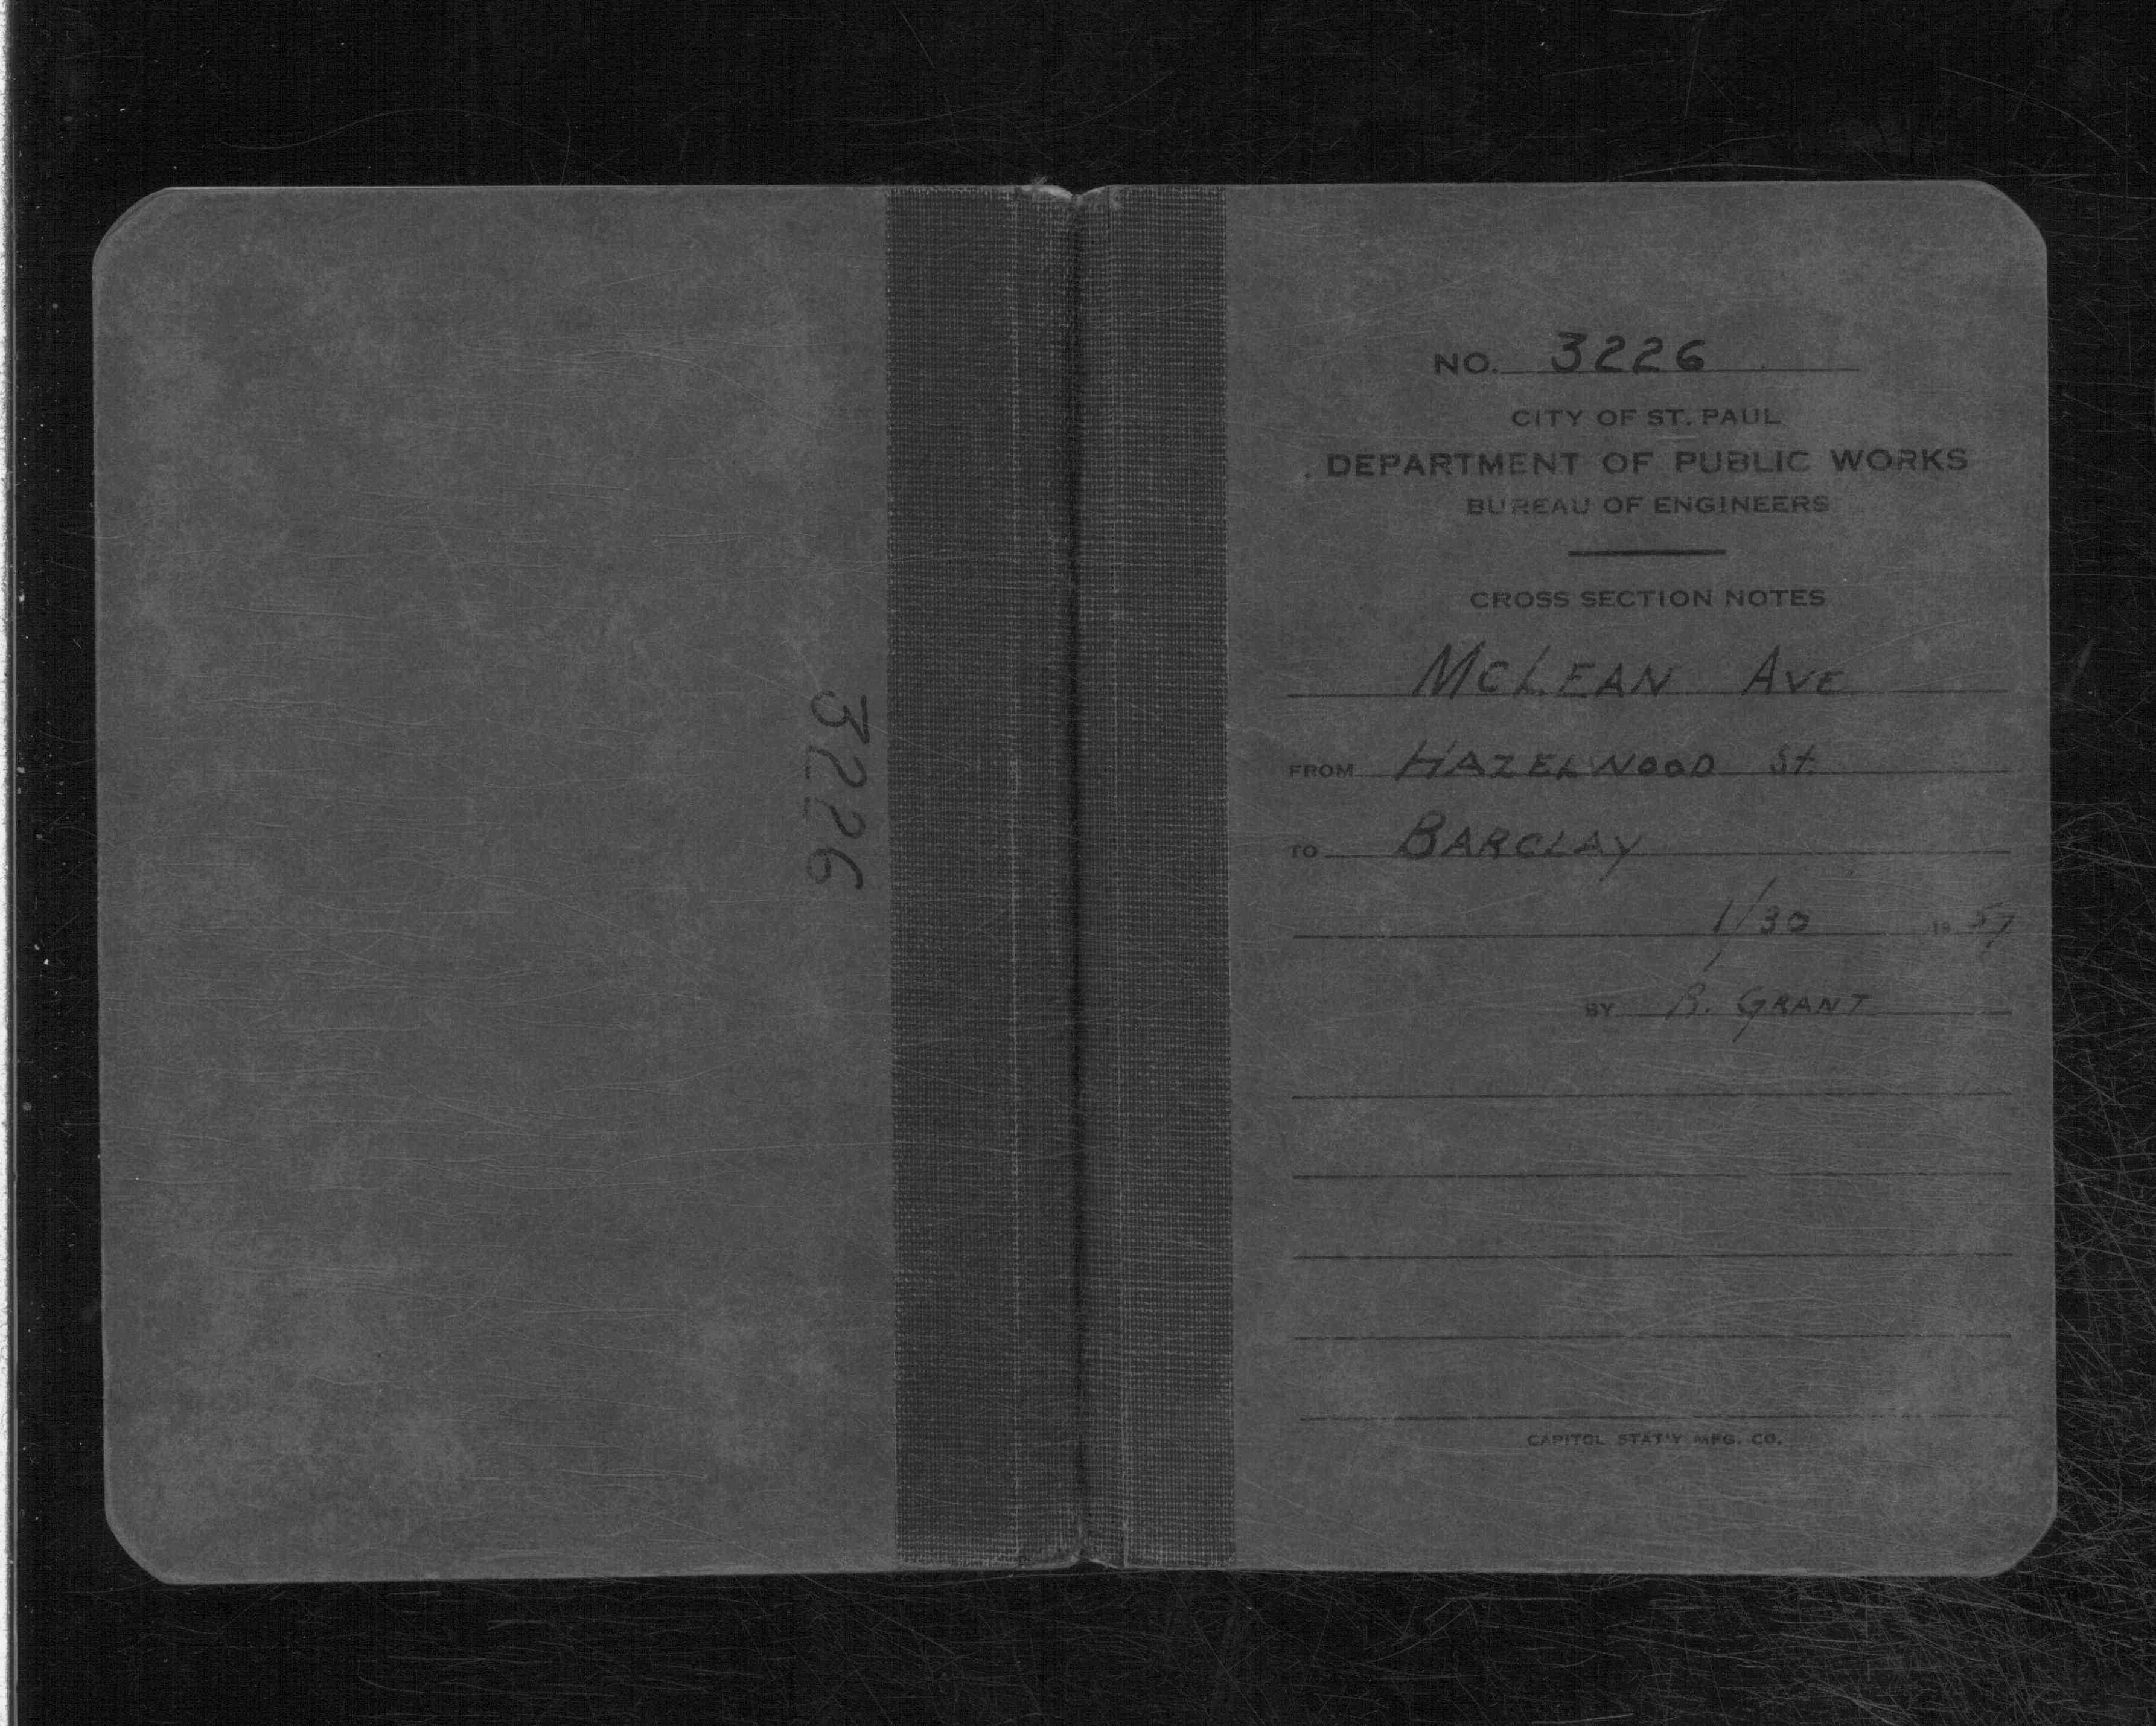 3226
NO. 3226
CITY OF ST. PAUL
DEPARTMENT OF PUBLIC WORKS
BUREAU OF ENGINEERS
CROSS SECTION NOTES
McLEAN AVE.
FROM HAZELWOOD St.
TO BARCLAY
1/30 1957
BY R. GRANT
CAPITOL STAT'Y MFG. CO.